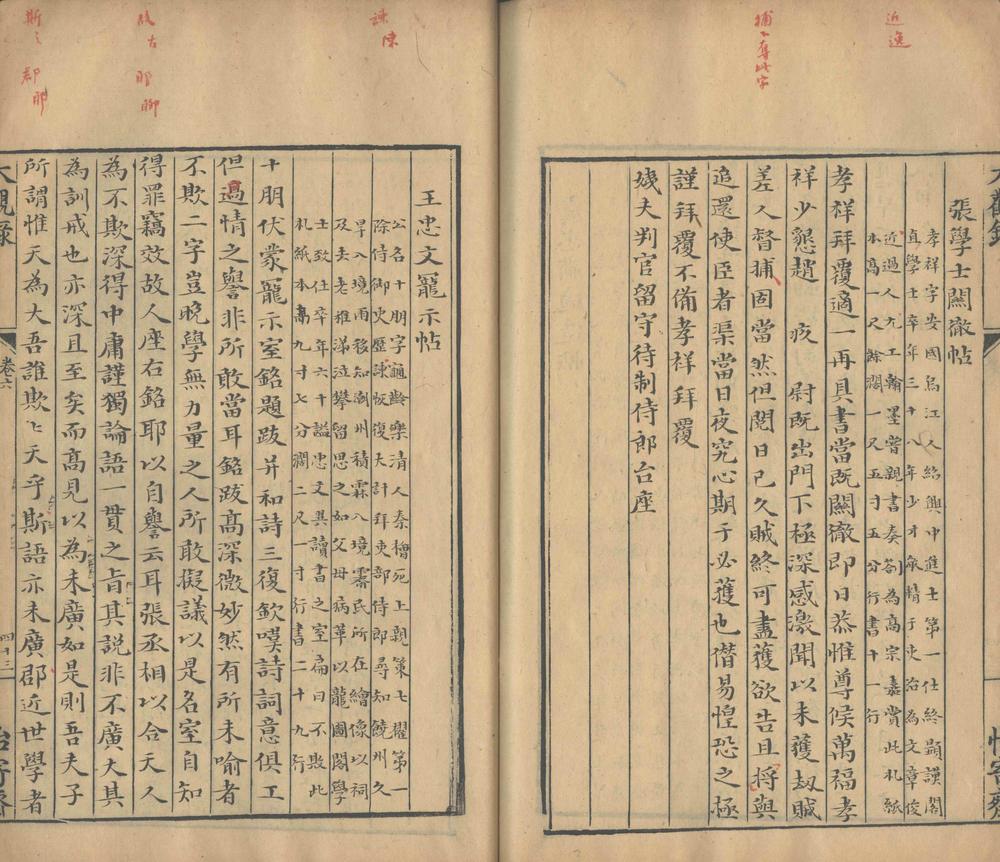 近逸
捕下奪此字
張學士關徹帖
孝祥字安國烏江人紹興中進士第一仕終顯謨閣
直學士卒年三十八年少才敏精于吏治為文章俊
近過人尤工翰墨嘗親書奏劄為高宗嘉賞此札紙
本高一尺餘濶一尺五寸五分行書十一行
孝祥拜覆適一再具書當既關徹即日恭惟尊候萬福孝
祥少懇趙 疾 尉既出門下極深感激聞以未獲刼賊
差人督捕固當然但閱日已久賊終可盡獲欲告且將與
追還使臣者渠當日夜究心期于必獲也僭易惶恐之極
謹拜覆不備孝祥拜覆
姨夫判官留守待制侍郎台座
諫陳
故古 耶聊
斯之 郡耶
王忠文寵示帖
公名十朋字龜齡樂清人秦檜死上親策士擢第一
除侍御史歷諫恢復大計拜吏部侍郎尋知饒州久
旱入境雨移知湖州積霖入境霽民所在繪像以祠
及去老稚涕泣攀留思之如父母病革以龍圖閣學
士致仕卒年六十謚忠文其讀書之室扁曰不欺此
札紙本高九寸七分濶二尺一寸行書二十九行
十朋伏蒙寵示室銘題跋并和詩三復欽嘆詩詞意俱工
但過情之譽非所敢當耳銘跋高深微妙然有所未喻者
不欺二字豈晚學無力量之人所敢擬議以是名室自知
得罪竊效故人座右銘耶以自譽云耳張丞相以合天人
為不欺深得中庸謹獨論語一貫之旨其說非不廣大其
為訓戒也亦深且至矣而高見以為未廣如是則吾夫子
所謂惟天為大吾誰欺欺天乎斯語亦未廣郡近世學者
大觀錄 卷六 四十三